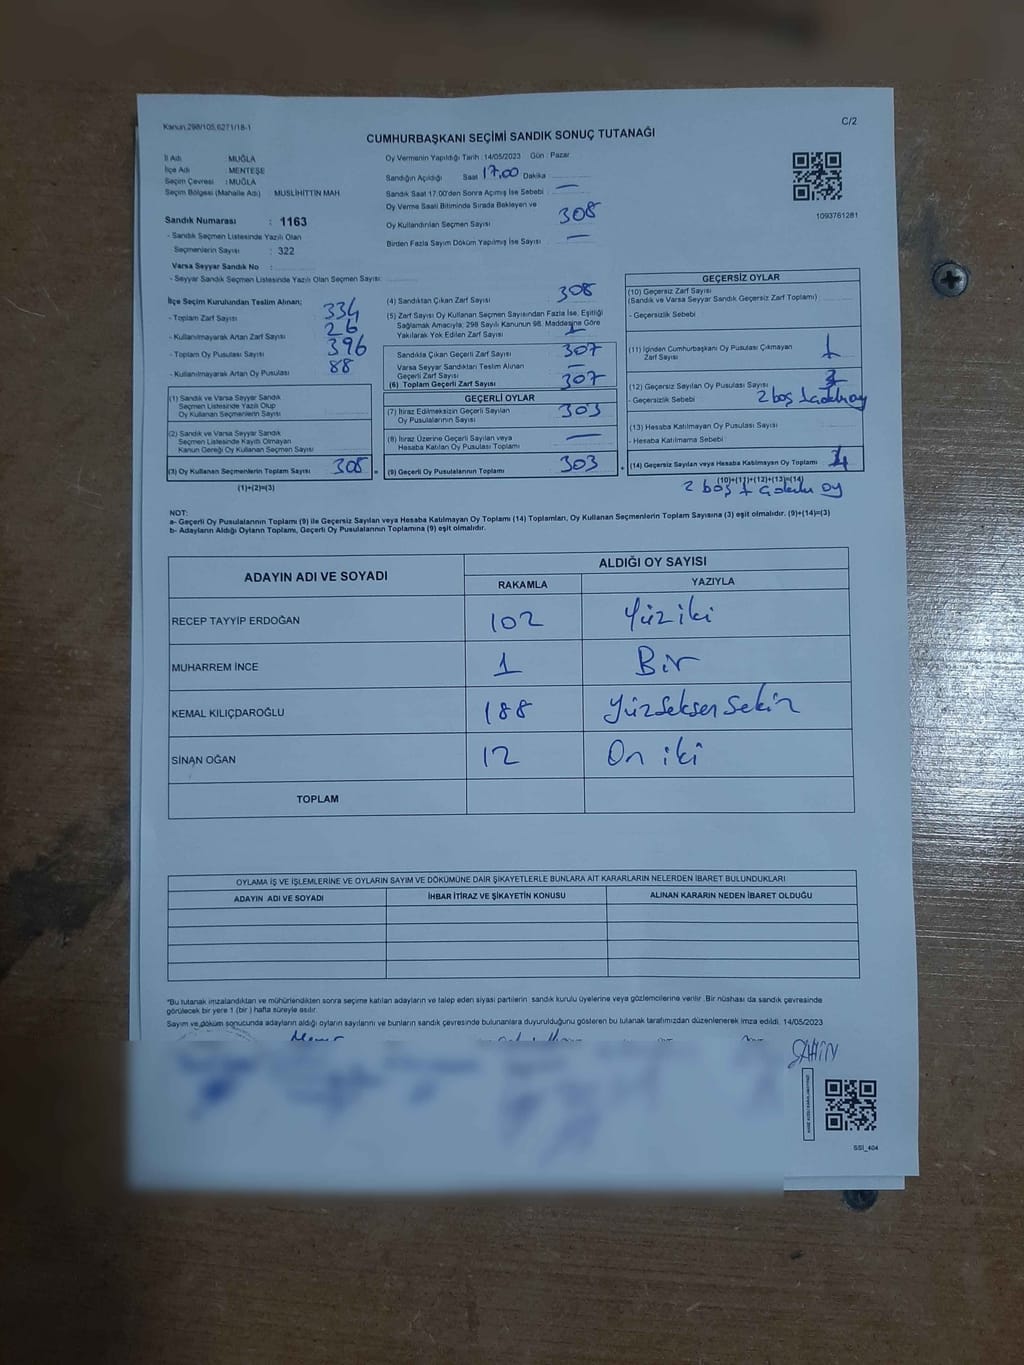 Kanun,298/105,6271/18-1
C/2
CUMHURBAŞKANI SEÇİMİ SANDIK SONUÇ TUTANAĞI
İl Adı MUĞLA
İlçe Adı MENTEŞE
Seçim Çevresi : MUĞLA
Seçim Bölgesi (Mahalle Adı) MUSLİHİTTİN MAH
Sandık Numarası : 1163
- Sandık Seçmen Listesinde Yazılı Olan
Seçmenlerin Sayısı : 322
Varsa Seyyar Sandık No :
- Seyyar Sandık Seçmen Listesinde Yazılı Olan Seçmen Sayısı:
Oy Vermenin Yapıldığı Tarih : 14/05/2023 Gün : Pazar
Sandığın Açıldığı Saat 17.00 Dakika
Sandık Saat 17.00'den Sonra Açımış İse Sebebi —
Oy Verme Saati Bitiminde Sırada Bekleyen ve
Oy Kullandırılan Seçmen Sayısı 308
Birden Fazla Sayım Döküm Yapılmış İse Sayısı —
1093761281
İlçe Seçim Kurulundan Teslim Alınan;
- Toplam Zarf Sayısı 334
- Kullanılmayarak Artan Zarf Sayısı 26
- Toplam Oy Pusulası Sayısı 396
- Kullanılmayarak Artan Oy Pusulası 88
(1) Sandık ve Varsa Seyyar Sandık
Seçmen Listesinde Yazılı Olup
Oy Kullanan Seçmenlerin Sayısı
(2) Sandık ve Varsa Seyyar Sandık
Seçmen Listesinde Kayıtlı Olmayan
Kanun Gereği Oy Kullanan Seçmen Sayısı
(3) Oy Kullanan Seçmenlerin Toplam Sayısı 308 =
(1)+(2)=(3)
(4) Sandıktan Çıkan Zarf Sayısı 308
(5) Zarf Sayısı Oy Kullanan Seçmen Sayısından Fazla İse, Eşitliği
Sağlamak Amacıyla; 298 Sayılı Kanunun 98. Maddesine Göre
Yakılarak Yok Edilen Zarf Sayısı 1
Sandıkta Çıkan Geçerli Zarf Sayısı 307
Varsa Seyyar Sandıktan Teslim Alınan
Geçerli Zarf Sayısı —
(6) Toplam Geçerli Zarf Sayısı 307
GEÇERLİ OYLAR
(7) İtiraz Edilmeksizin Geçerli Sayılan
Oy Pusulalarının Sayısı 303
(8) İtiraz Üzerine Geçerli Sayılan veya
Hesaba Katılan Oy Pusulası Toplamı —
(9) Geçerli Oy Pusulalarının Toplamı 303 +
GEÇERSİZ OYLAR
(10) Geçersiz Zarf Sayısı
(Sandık ve Varsa Seyyar Sandık Geçersiz Zarf Toplamı)
- Geçersizlik Sebebi
(11) İçinden Cumhurbaşkanı Oy Pusulası Çıkmayan
Zarf Sayısı 1
(12) Geçersiz Sayılan Oy Pusulası Sayısı 3
- Geçersizlik Sebebi 2 boş 1 oy
(13) Hesaba Katılmayan Oy Pusulası Sayısı
- Hesaba Katılmama Sebebi
(14) Geçersiz Sayılan veya Hesaba Katılmayan Oy Toplamı 4
(10)+(11)+(12)+(13)=(14)
2 boş 1 oy
NOT:
a- Geçerli Oy Pusulalarının Toplamı (9) ile Geçersiz Sayılan veya Hesaba Katılmayan Oy Toplamı (14) Toplamları, Oy Kullanan Seçmenlerin Toplam Sayısına (3) eşit olmalıdır. (9)+(14)=(3)
b- Adayların Aldığı Oyların Toplamı, Geçerli Oy Pusulalarının Toplamına (9) eşit olmalıdır.
ADAYIN ADI VE SOYADI ALDIĞI OY SAYISI
RAKAMLA YAZIYLA
RECEP TAYYİP ERDOĞAN 102 Yüz iki
MUHARREM İNCE 1 Bir
KEMAL KILIÇDAROĞLU 188 Yüzseksen sekiz
SİNAN OĞAN 12 On iki
TOPLAM
OYLAMA İŞ VE İŞLEMLERİNE VE OYLARIN SAYIM VE DÖKÜMÜNE DAİR ŞİKAYETLERLE BUNLARA AİT KARARLARIN NELERDEN İBARET BULUNDUKLARI
ADAYIN ADI VE SOYADI İHBAR İTİRAZ VE ŞİKAYETİN KONUSU ALINAN KARARIN NEDEN İBARET OLDUĞU
*Bu tutanak imzalandıktan ve mühürlendikten sonra seçime katılan adayların ve talep eden siyasi partilerin sandık kurulu üyelerine veya gözlemcilerine verilir. Bir nüshası da sandık çevresinde
görülecek bir yere 1 (bir) hafta süreyle asılır.
Sayım ve döküm sonucunda adayların aldığı oyların sayılarını ve bunların sandık çevresinde bulunanlara duyurulduğunu gösteren bu tutanak tarafımızdan düzenlenerek imza edildi. 14/05/2023
ŞAHİN
SSİ_404